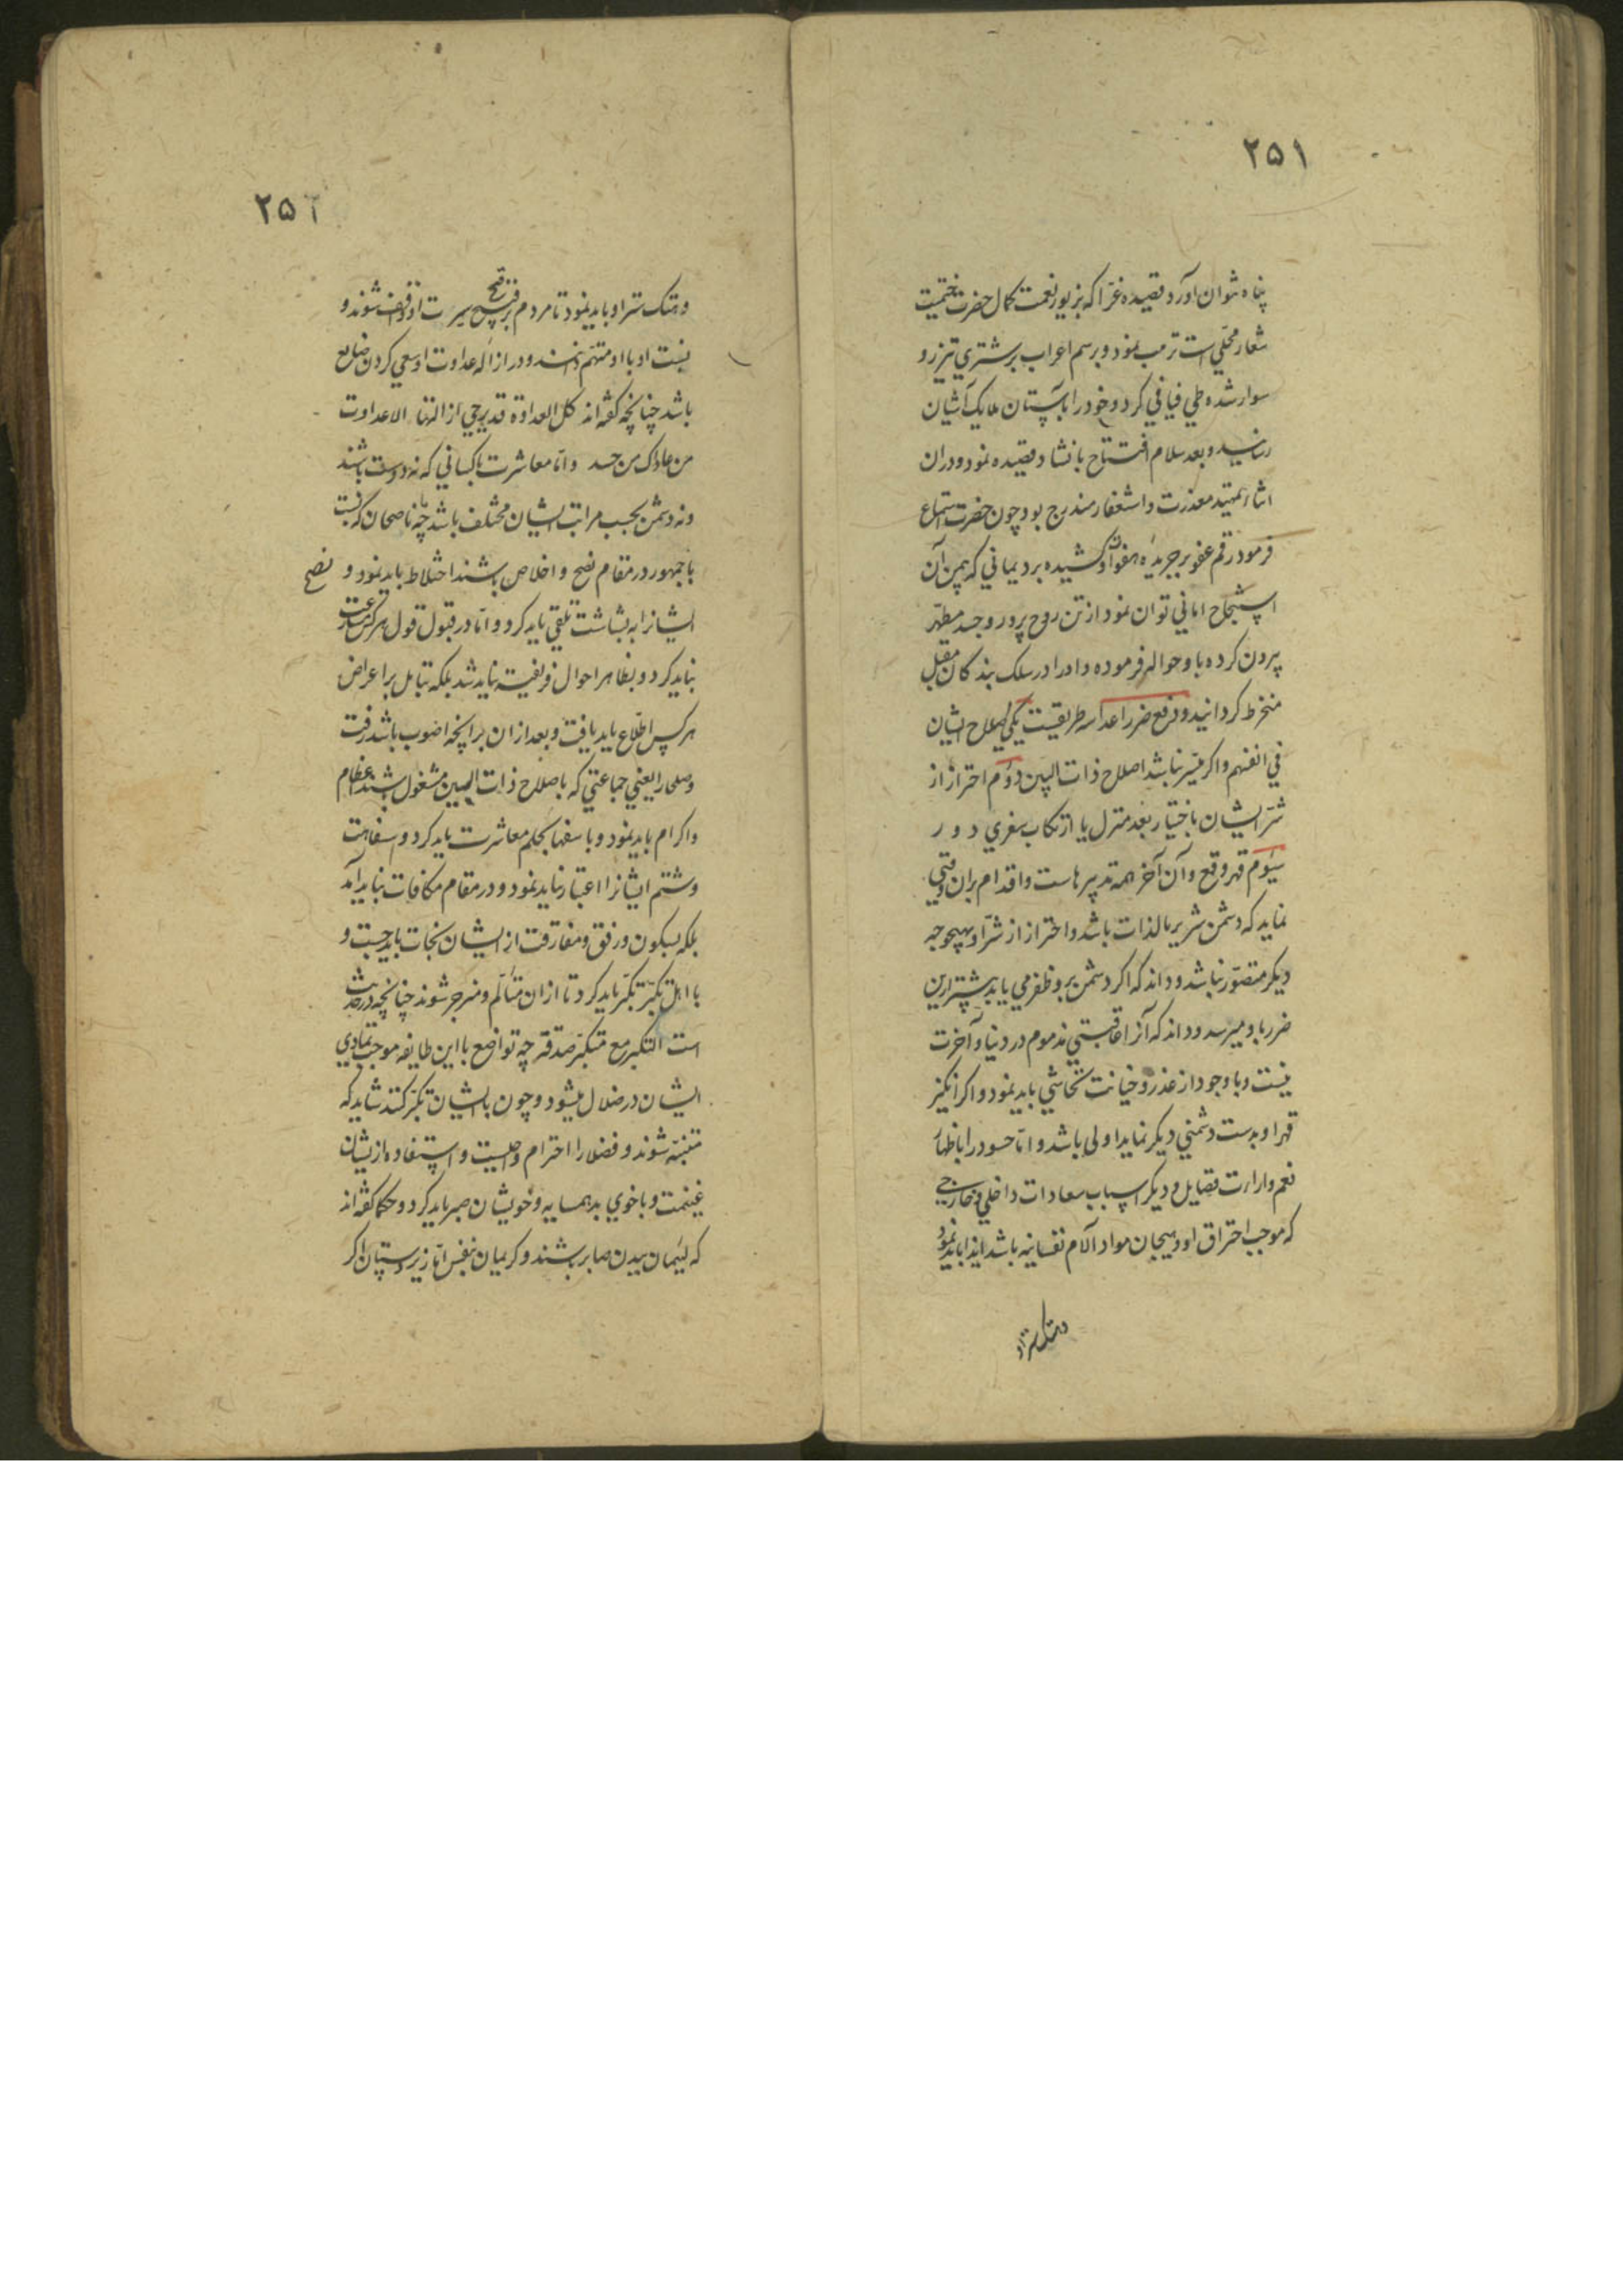 ۲۵۱
پناه شوان آورد قصیده غرّا که بزیور نعمت کمال حضرت ختمیت
شعار محلّی است ترتیب نمود و برسم اعراب بر شتری تیزرو
سوار شده طی فیافی کرد و خود را بآستان ملایک آشیان
رسانید و بعد سلام افتتاح بانشاد قصیده نمود و دران
اشاء تمهید معذرت و استغفار مندرج بود چون حضرت استماع
فرمود رقم عفو بر جریدهٔ هفوات او کشیده برد یمانی که بیمن آن
استنجاح امانی توان نمود از تن روح پرور و جسد مطهّر
بیرون کرده باو حواله فرموده و او را در سلک بندکان مقبل
منخرط کردانید و دفع ضرر اعدا سه طریقست یکی اصلاح ایشان
فی انفسهم و اکر میسّر نباشد اصلاح ذات البین دوّم احتراز از
شرّ ایشان باختیار بعد منزل یا ارتکاب سفری دور
سیّوم قهر و قمع و آن آخر همه تدبیرهاست و اقدام بران وقتی
نماید که دشمن شریر بالذات باشد و احتراز از شرّ او بهیچوجه
دیکر متصوّر نباشد و داند که اکر دشمن برو ظفر می یابد بیشتر ازین
ضرر باو میرسد و داند که آنرا عاقبتی مذموم در دنیا و آخرت
نیست و با وجود از غدر و خیانت تحاشی باید نمود و اکر انکیز
قهر او بدست دشمنی دیکر نماید اولی باشد و امّا حسود را باظهار
نعم و اراءت فضایل و دیکر اسباب سعادات داخلی و خارجی
که موجب احتراق او و هیجان مواد آلام نفسانیه باشد ایذا باید نمود
و هتک ستر او
۲۵۲
و هتک ستر او باید نمود تا مردم بر قبح سیرت او واقف شوند و
نسبت او با او متهّم دانند و در ازاله عداوت او سعی کردن ضایع
باشد چنانچه کفته اند کل العداوة قد یرجی ازالتها الا عداوت
من عاداک من حسد و امّا معاشرت با کسانی که نه دوست باشند
و نه دشمن بحسب مراتب ایشان مختلف باشد چه با ناصحان که نسبت
با جمهور در مقام نصح و اخلاص باشند اختلاط باید نمود و نصح
ایشانرا به بشاشت تلقّی باید کرد و امّا در قبول قول هر کس مسارعت
نباید کرد و بظاهر احوال فریفته نباید شد بلکه بتامل بر اعراض
هر کس اطّلاع باید یافت و بعد ازان بر آنچه اصوب باشد رفت
و صلحا را یعنی جماعتی که باصلاح ذات البین مشغول باشند عظام
و اکرام باید نمود و با سفها بحلم معاشرت باید کرد و سفاهت
و شتم ایشانرا اعتبار نباید نمود و در مقام مکافات نباید آمد
بلکه بسکون و رفق و مفارقت از ایشان نجات باید جست و
با اهل تکبّر تکبّر باید کرد تا ازان متألّم و منزجر شوند چنانچه در حدیث
است التکبر مع متکبّر صدقة چه تواضع با این طایفه موجب تمادی
ایشان در ضلال میشود و چون با ایشان تکبّر کنند شاید که
متنبّه شوند و فضلا را احترام واجبست و استفاده از ایشان
غنیمت و با خوی بد همسایه و خویشان صبر باید کرد و حکما کفته اند
که لئیمان ببدن صابر باشند و کریمان بنفس امّا زیردستان اکر